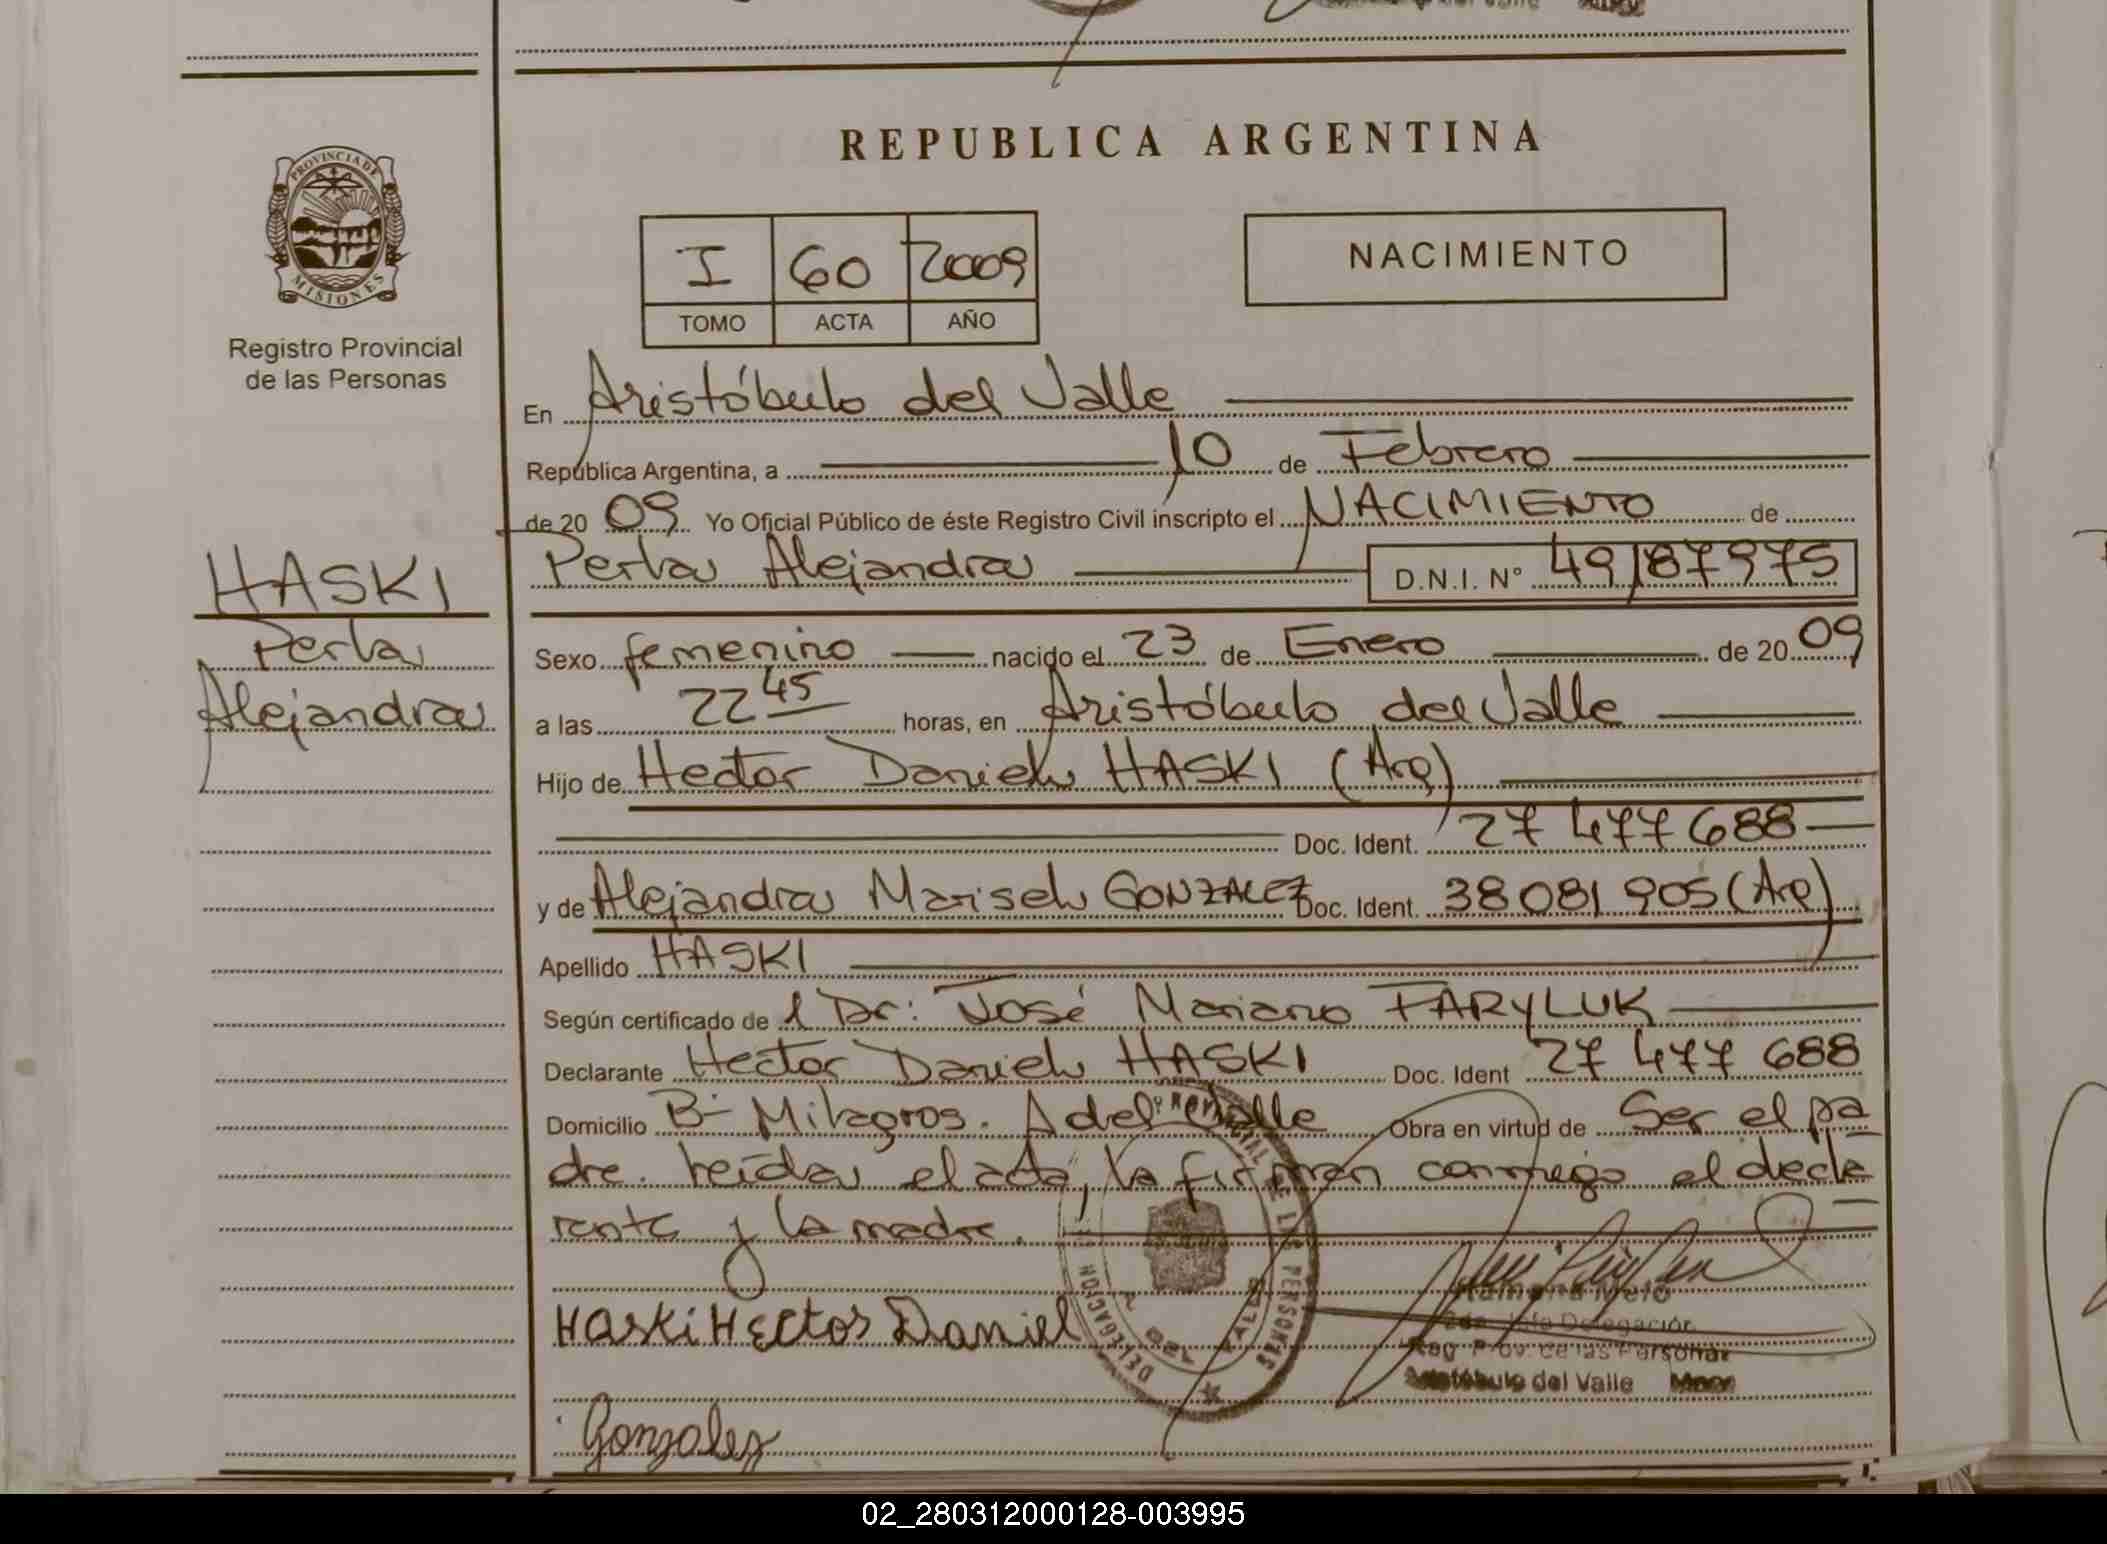 REPUBLICA ARGENTINA
PROVINCIA DE
MISIONES
Registro Provincial
de las Personas
I 60 2009
TOMO ACTA AÑO
NACIMIENTO
En Aristóbulo del Valle
República Argentina, a 10 de Febrero
de 20 09 Yo Oficial Público de éste Registro Civil inscripto el NACIMIENTO de
Perla Alejandra D.N.I. N° 49187975
HASKI
Perla
Alejandra
Sexo femenino nacido el 23 de Enero de 20 09
a las 22 45 horas, en Aristóbulo del Valle
Hijo de Hector Daniel HASKI (Arg)
Doc. Ident. 27 477 688
y de Alejandra Marisel GONZALEZ Doc. Ident. 38 081 905 (Arg)
Apellido HASKI
Según certificado de l Dr: José Mariano FARYLUK
Declarante Hector Daniel HASKI Doc. Ident 27 477 688
Domicilio B- Milagros. A del Valle Obra en virtud de Ser el pa
dre. leída el acta, la firman conmigo el decla
rante y la madre.
HASKi HEctor Daniel
DELEGACION
DEL VALLE
DE LAS PERSONAS
Delegación
Reg. Prov. de las Personas
Aristóbulo del Valle
Gonzalez
02_280312000128-003995